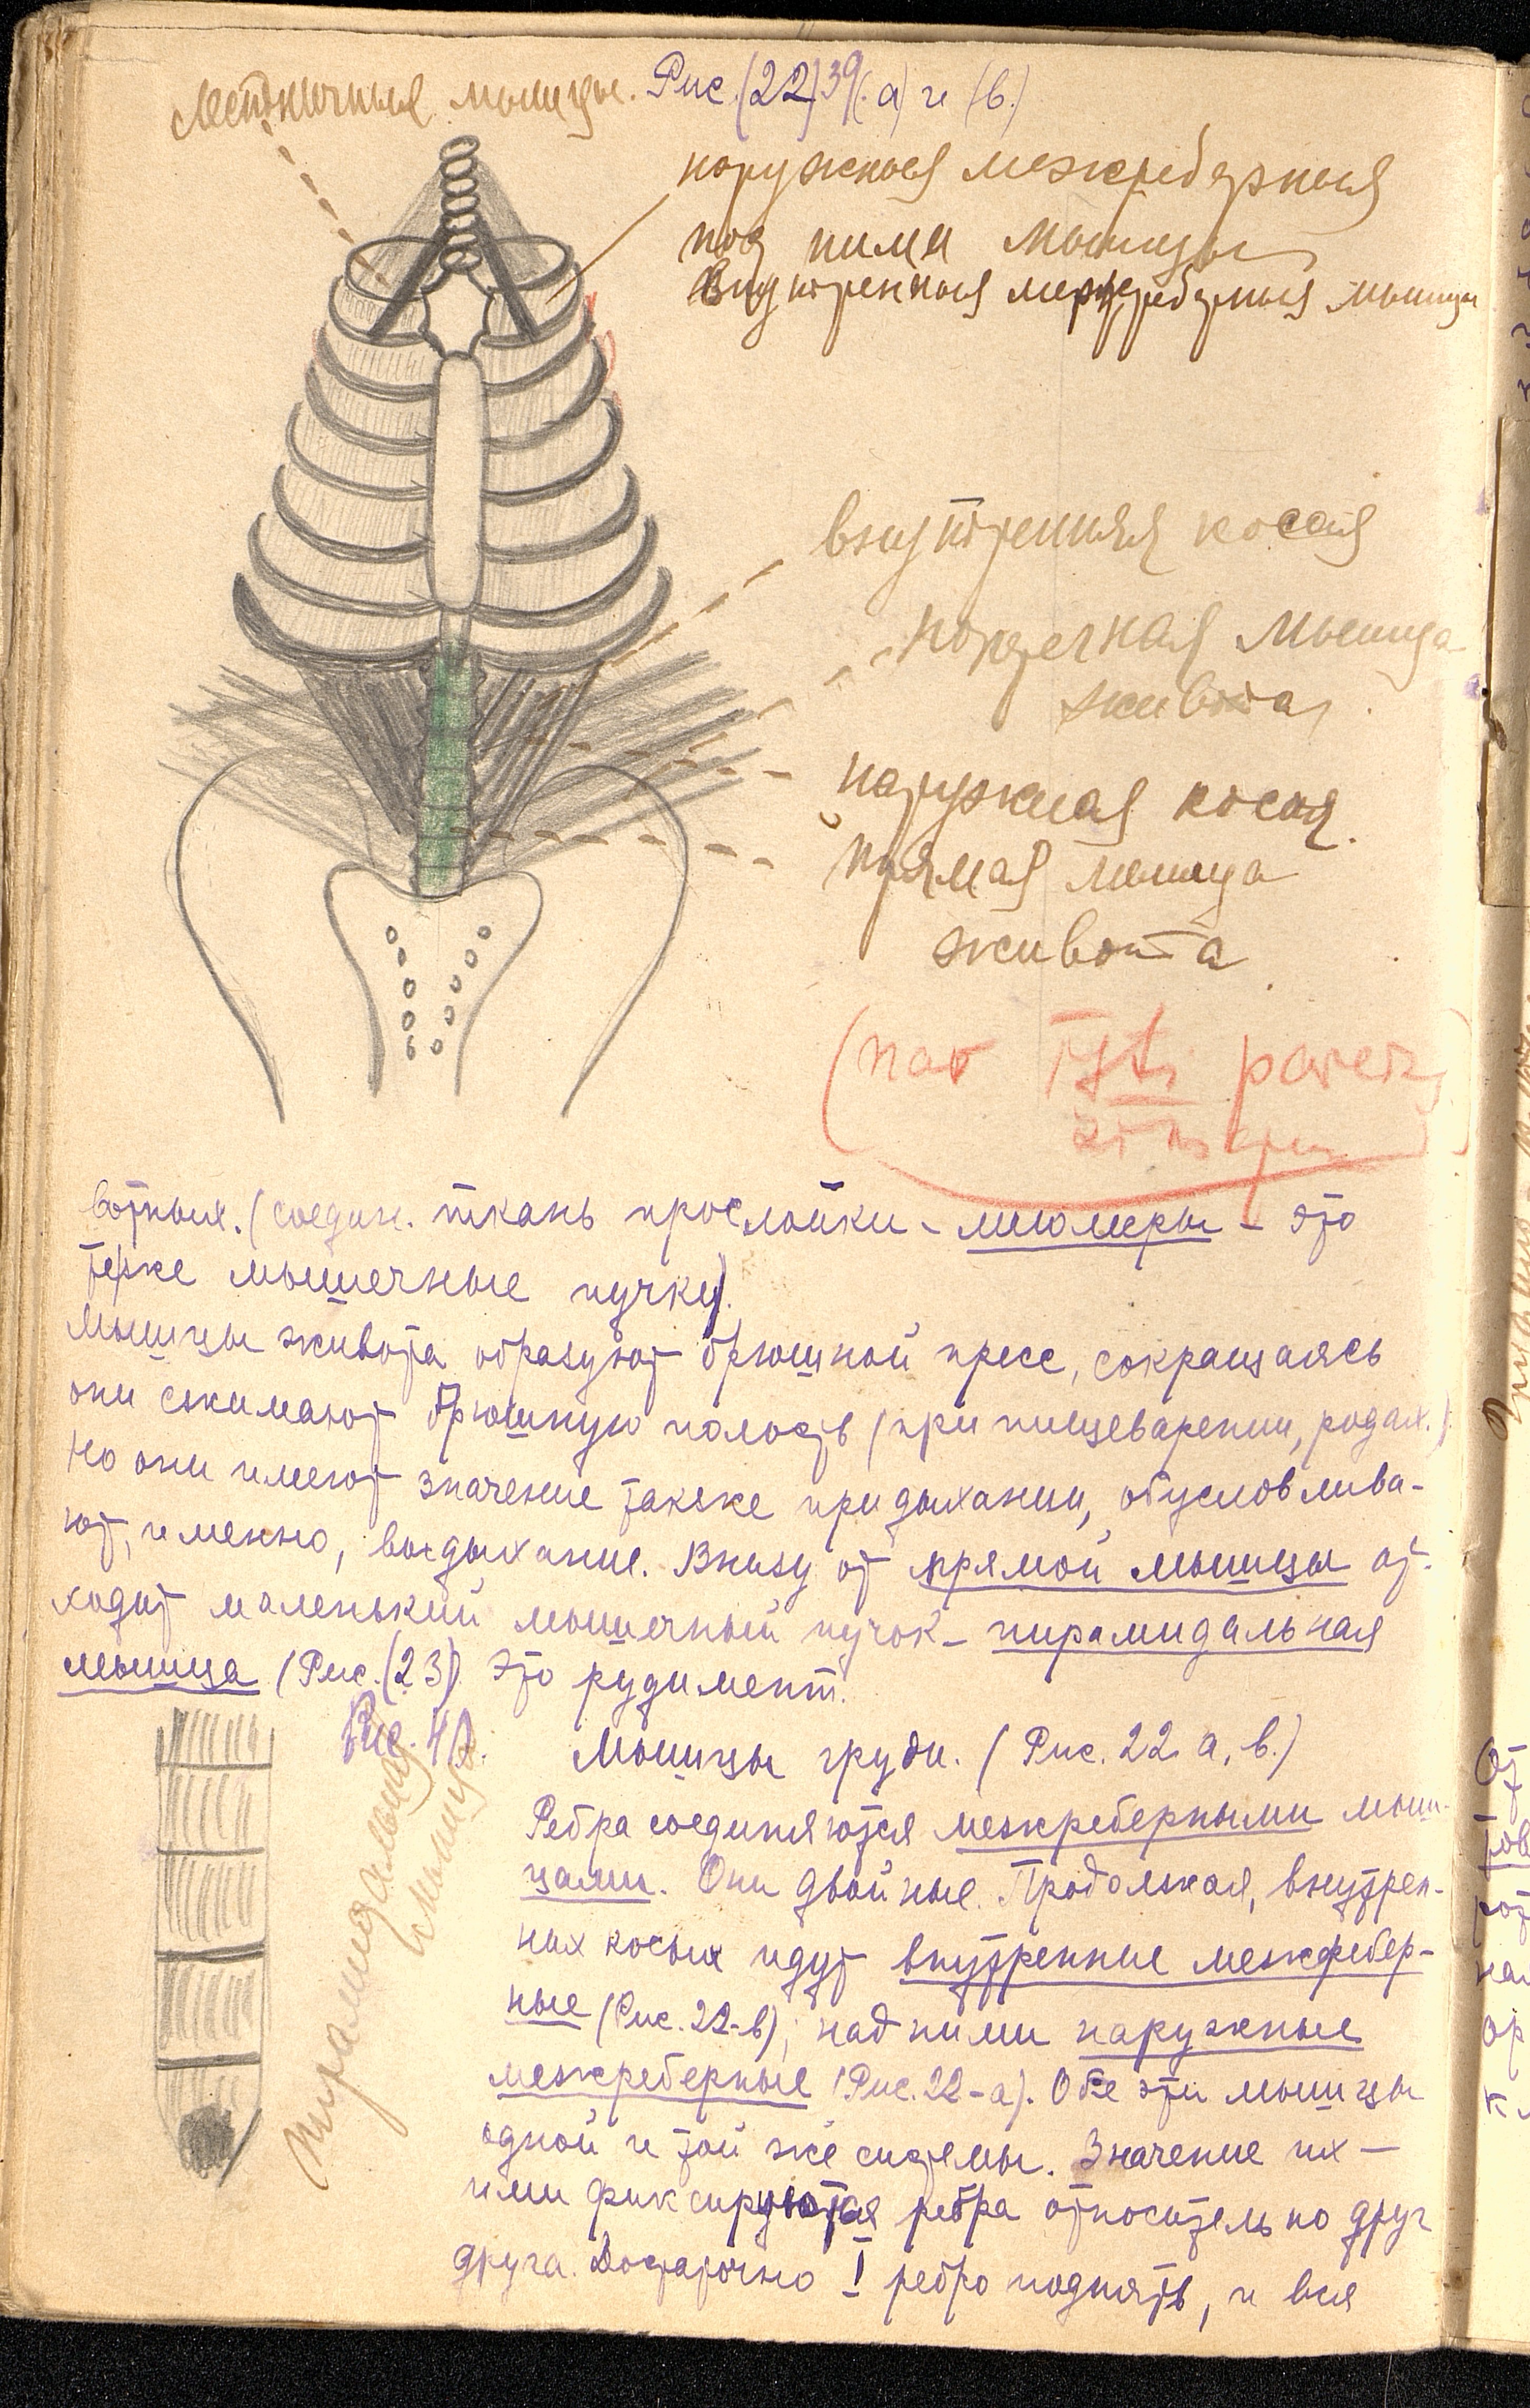 Лестничные мышцы. Рис. (22) 39 (а) и (в.)
наружная межреберная
под ними мышцы
внутренная межреберная мышцы
внутренняя косая
поперечная мышца
живота.
наружная косая.
прямая мышца
живота.
вотных. (соедин. ткань прослойки - миомеры - это
теже мышечные пучки).
Мышцы живота образуют брюшной пресс, сокращаясь
они сжимают брюшную полость (при пищеварении, родах.).
Но они имеют значение также при дыхании, обусловлива-
ют, именно, выдыхание. Внизу от прямой мышцы от-
ходит маленький мышечный пучок - пирамидальная
мышца (Рис. (23). Это рудимент.
Рис. 40.
пирамидальная
мышца
Мышцы груди. (Рис. 22 а, в.)
Ребра соединяются межреберными мыш-
цами. Они двойные. Продолжая, внутрен-
них косых идут внутренние межребер-
ные (Рис. 22-в), над ними наружные
межреберные (Рис. 22-а). Обе эти мышцы
одной и той же системы. Значение их —
ими фиксируются ребра относительно друг
друга. Достаточно I ребро поднять, и вся